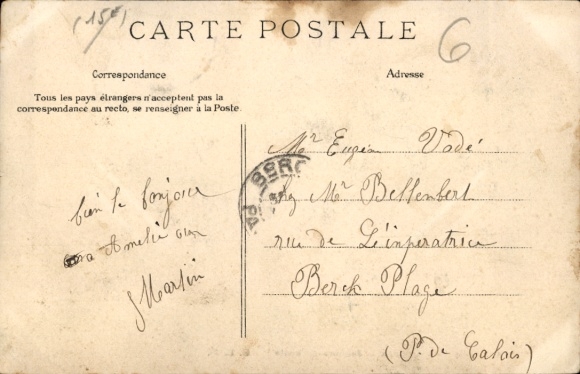 (15f)
6
CARTE POSTALE
Correspondance
Adresse
Tous les pays étrangers n'acceptent pas la
correspondance au recto, se renseigner à la Poste.
bien le bonjour
Amelie
Martin
Mr Eugén Vodé
chez Mr Bellenbert
rue de L'inperatrice
Berck Plage
(P. de Calais)
BERC